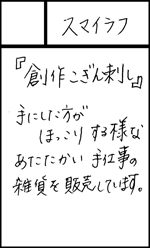 スマイラフ
『創作こぎん刺し』
手にした方が
ほっこりする様な
あたたかい手仕事の
雑貨を販売しています。